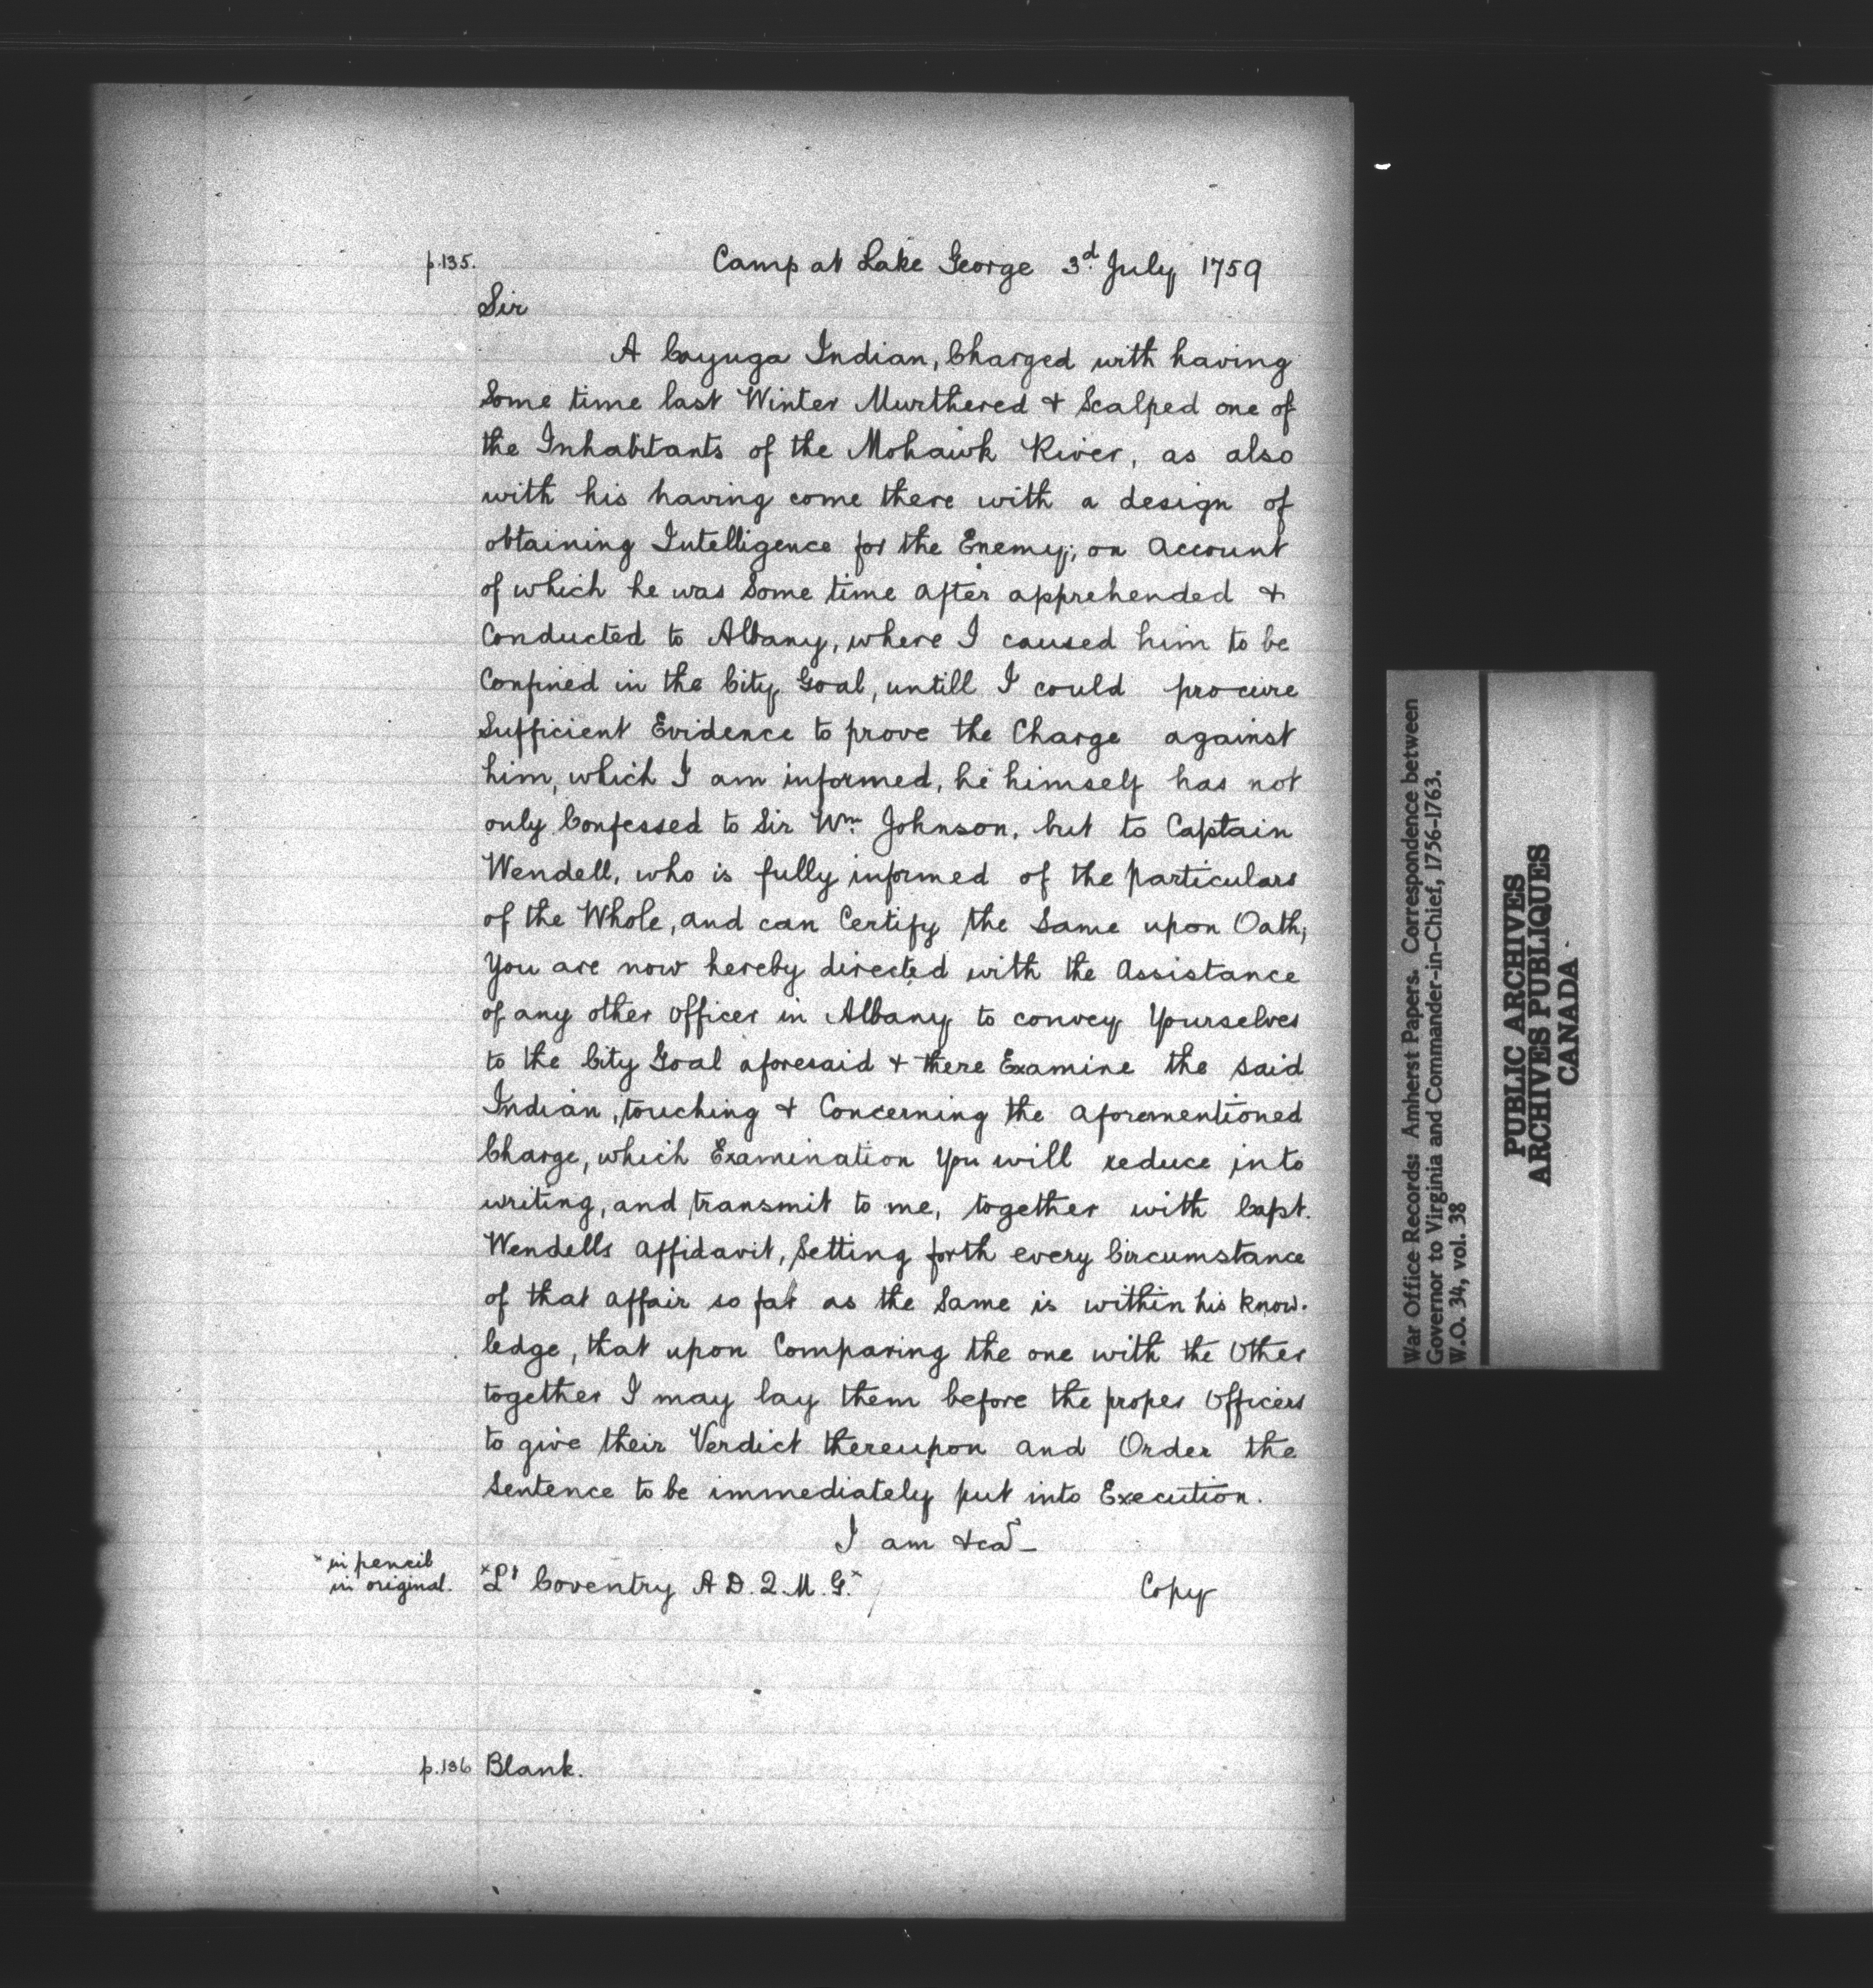 p.135. Camp at Lake George 3d. July 1759
Sir
A Cayuga Indian, Charged with having
Some time last Winter Murthered & Scalped one of
the Inhabitants of the Mohawk River, as also
with his having come there with a design of
obtaining Intelligence for the Enemy; on Account
of which he was Some time after apprehended &
Conducted to Albany, where I caused him to be
Confined in the City Goal, untill I could procure
Sufficient Evidence to prove the Charge against
him, which I am informed, he himself has not
only Confessed to Sir Wm. Johnson, but to Captain
Wendell, who is fully informed of the particulars
of the Whole, and can Certify the Same upon Oath;
You are now hereby directed with the Assistance
of any other Officer in Albany to convey Yourselves
to the City Goal aforesaid & there Examine the said
Indian, touching & Concerning the aforementioned
Charge, which Examination You will reduce into
writing, and transmit to me, together with Capt.
Wendells Affidavit, Setting forth every Circumstance
of that affair so far as the Same is within his know-
ledge, that upon Comparing the one with the Other
together I may lay them before the proper Officers
to give their Verdict thereupon and Order the
Sentence to be immediately put into Execution.
I am &ca
x in pencil
in original.
xLt Coventry A D. Q. M. G.x Copy
p.136 Blank.
War Office Records: Amherst Papers. Correspondence between
Governor to Virginia and Commander-in-Chief, 1756-1763.
W.O. 34, vol. 38
PUBLIC ARCHIVES
ARCHIVES PUBLIQUES
CANADA